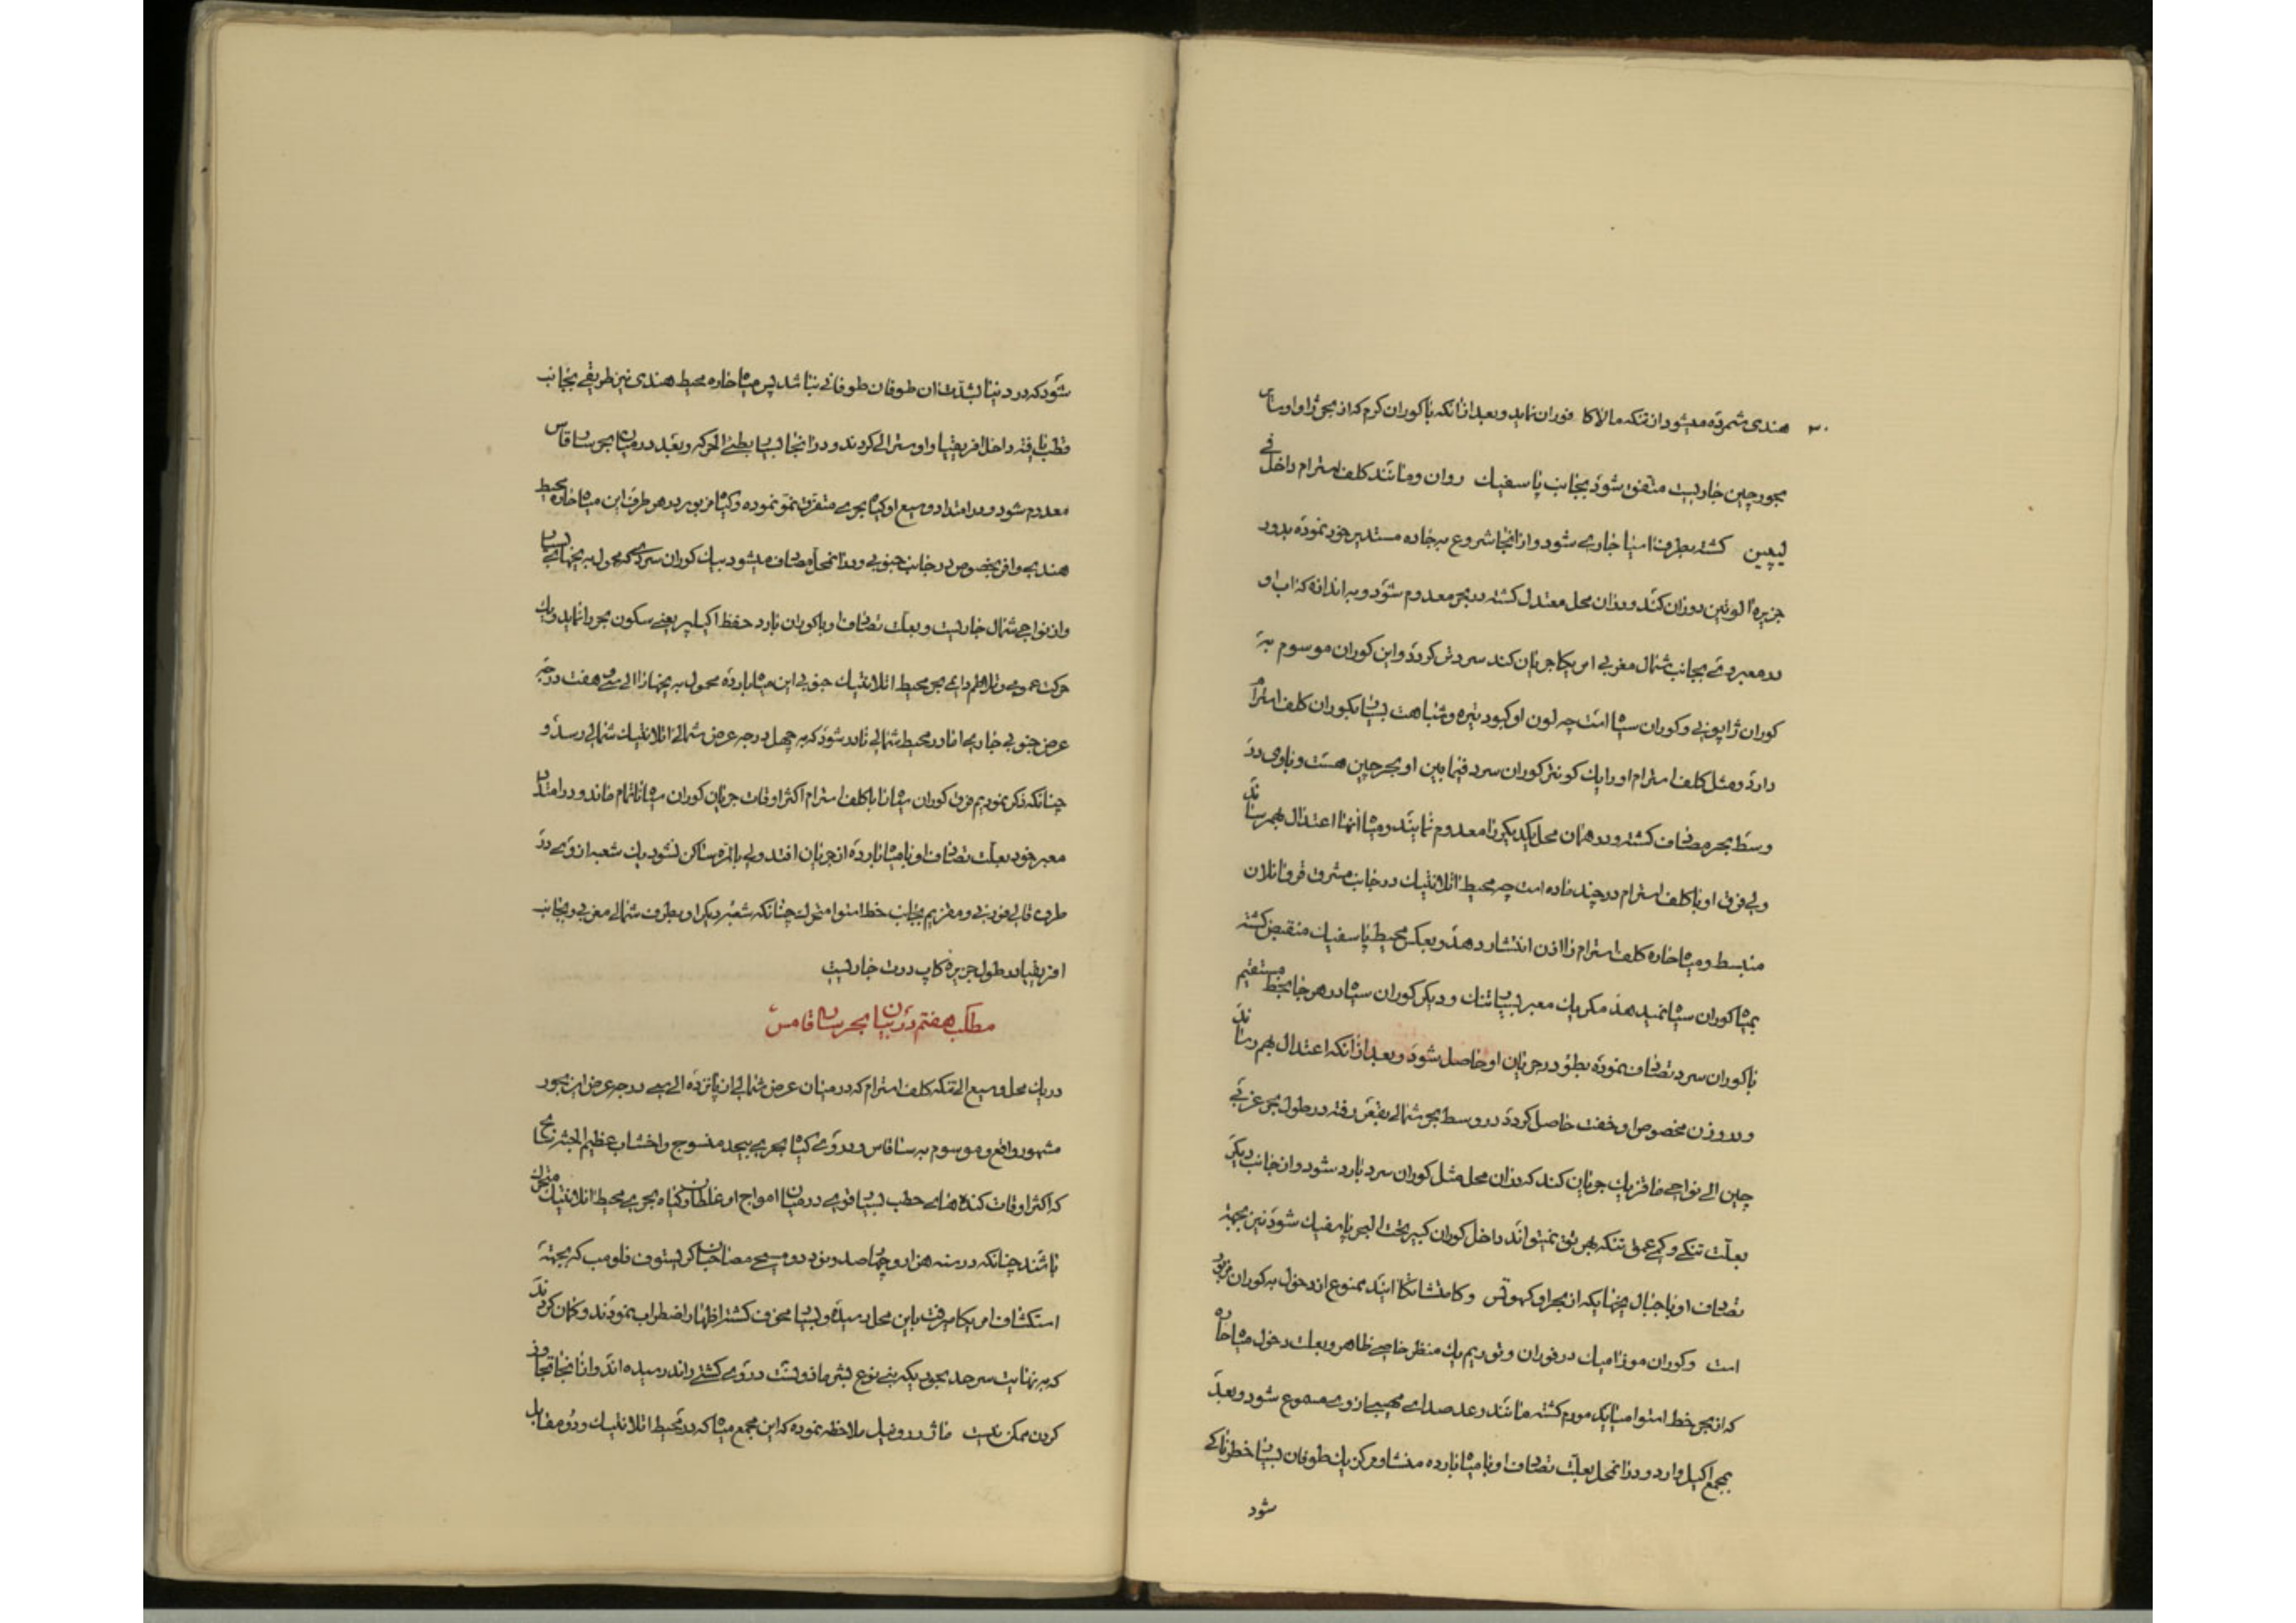 هندی شمرده میشود از تنکه مالاکا فوران نماید و بعد از آنکه با کوران کرم که از بحر ژاوا و سا
بحور چین جاریست متفق شود بجانب پاسفیک روان و مانند کلف استرام داخل
لیپین کشته بطرف اسیا جاری شود و از انجا شروع به جاده مستدیر خود نموده بدور
جزیره الوتین دوران کند و در ان محل معتدل کشته در بحر معدوم شود و به اندازه که اب او
در معبر وی بجانب شمال مغربی امریکا جریان کند سردش کردد و این کوران موسوم به
کوران ژاپونی و کوران سیاه است چه لون او کبود تیره و شباهت بسیار بکوران کلف استرام
دارد و مثل کلف استرام او را یک کونتر کوران سرد فیما بین او و بحر چین هست و با وی در
وسط بحر مصادف کشته و در همان محل یکدیکر را معدوم نمایند و میاه انها اعتدال بهم رسانند
ولی فرق او با کلف استرام در چند ماده است چه محیط اتلانتیک در جانب مشرق فروانلان
منبسط و میاه حاره کلف استرام را اذن انتشار دهد و بعکس محیط پاسفیک منقبض کشته
بمیاه کوران سیاه نمیدهد مکر یک معبر بسیار تنک و دیکر کوران سیاه در هر جا بخط مستقیم
با کوران سرد تصادف نموده بطؤ در جریان او حاصل شود و بعد از انکه اعتدال بهم رسانند
و در وزن مخصوص او خفت حاصل کردد در وسط بحر شمالی بقعر رفته در طول بحر غربی
چین الی نواحی ماقزیک جریان کند که در ان محل مثل کوران سرد بارد شود و از جانب دیکر
بعلت تنکی و کمی عمق تنکه بهرینق نمیتواند داخل کوران کبیر تحت البحر پاسفیک شود نیز بجهة
تصادف او با جبال یخهائیکه از بحر اوکهوتس و کامتشاتکا ایند ممنوع از دخول به کوران مزبور
است و کوران موزامبیک در فوران و توریم یک منظر خاصی ظاهر و بعلت دخول میاه حاره
که از بحر خط استوا میاید مورم کشته مانند رعد صدای مهیبی از وی مسموع شود و بعد
بمجمع اکیل وارد و در انمحل بعلت تصادف او با میاه بارده منشاء و مرکز یک طوفان بسیار خطرناکی
شود
شود که در دنیا بشدت ان طوفان طوفانی نباشد پس میاه حاره محیط هندی نیز طریقی بجانب
قطب یافته داخل افریقیا و اوسترالی کردند و در انجا بسیار بطئی الحرکه و بعد در میان بحر سارقاس
معدوم شود و در امتداد وسیع او کیاه بحری متفرق نمو نموده و کیاه مزبور در هر طرف این میاه حاره محیط
هندی وافر بخصوص در جانب جنوبی و در انمحل مصادف میشود بیک کوران سردی که محمول به یخهای بسیار
و از نواحی شمال جاریست و بعلت تصادف او با کوران بارد حفظ اکیلیبر یعنی سکون بحر را نماید و یک
حرکت عمومی و تلاطم دایمی بحر محیط اتلانتیک جنوبی این میاه بارده محمول به یخها را الی سی و هفت درجه
عرض جنوبی جاری اما در محیط شمالی نادر شود که به چهل درجه عرض شمالی اتلانتیک شمالی رسد و
چنانکه ذکر نمودیم فرق کوران سیاه را با کلف استرام اکثر اوقات جریان کوران سیاه ناتمام ماند و در امتداد
معبر خود بعلت تصادف او با میاه بارده از جریان افتد ولی بالمره ساکن نشود یک شعبه از وی در
طرف قالیفورنی و مقزیم بجانب خط استوا متحرک چنانکه شعبه دیکر او بطرف شمالی مغربی و بجانب
افریقیا در طول جزیره کاپ درت جاریست
مطلب هفتم در بیان بحر سارقامس
در یک محل وسیع الی تنکه کلف استرام که در میان عرض شمالی از پانزده الی سی درجه عرض این بحور
مشهور واقع و موسوم به سارقاس و در وی کیاه بحری بیحد منسوج و اخشاب عظیم الجثه
که اکثر اوقات کنده های حطب بسیار قوی در میان امواج او غلطان و کیاه بحری محیط اتلانتیک متحرک
باشند چنانکه در سنه هزار و چهارصد و نود و دو مسیحی مصاحبان کریستوف قلومب که بجهة
استکشاف امریکا میرفت باین محل رسیده و بسیار مخوف کشته اظهار اضطراب نمودند و کمان کردند
که به نهایت سرحد بحوریکه بنی نوع بشر مأذونست در وی کشتی راند رسیده اند و از انجا تجاوز
کردن ممکن نیست ماژور ونیل ملاحظه نموده که این مجمع میاه که در محیط اتلانتیک و در مقابل